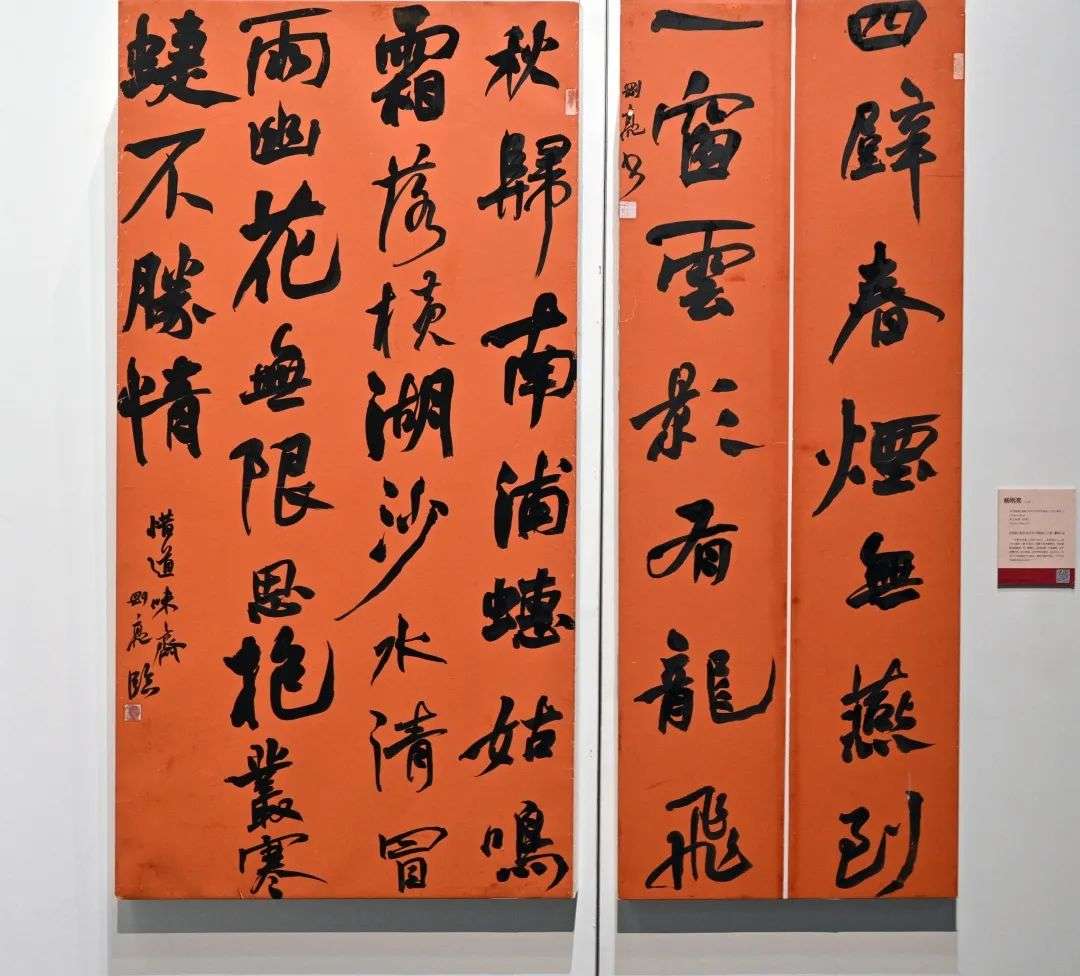 四壁春煙無燕到
一窗雲影有龍飛
剛亮书
秋歸南浦蟪姑鳴
霜落橫湖沙水清冒
雨幽花無限思抱叢寒
蜨不勝情
惜道味齋
剛亮臨